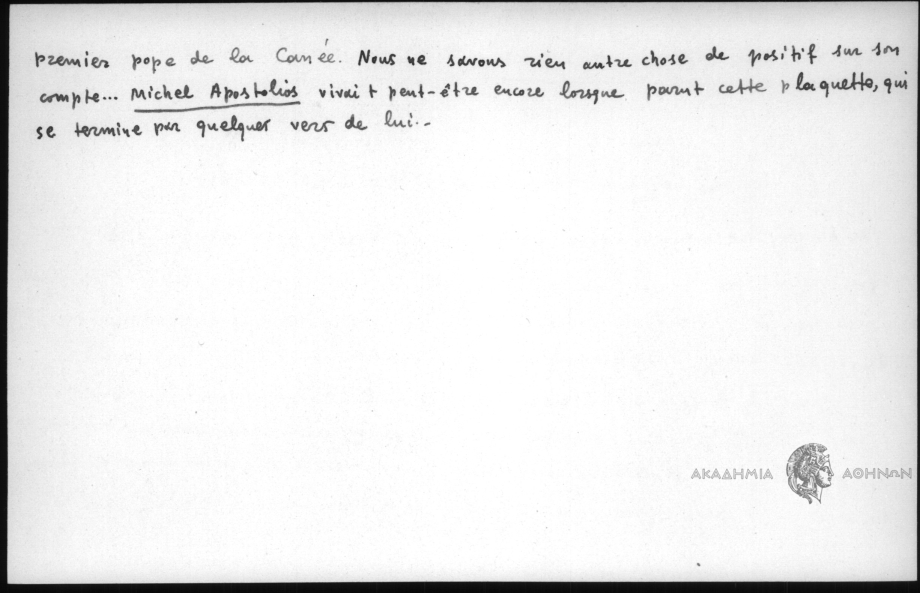 premier pope de la Canée. Nous ne savons rien autre chose de positif sur son
compte... Michel Apostolios vivait peut-être encore lorsque parut cette plaquette, qui
se termine par quelques vers de lui...
ΑΚΑΔΗΜΙΑ ΑΘΗΝΩΝ